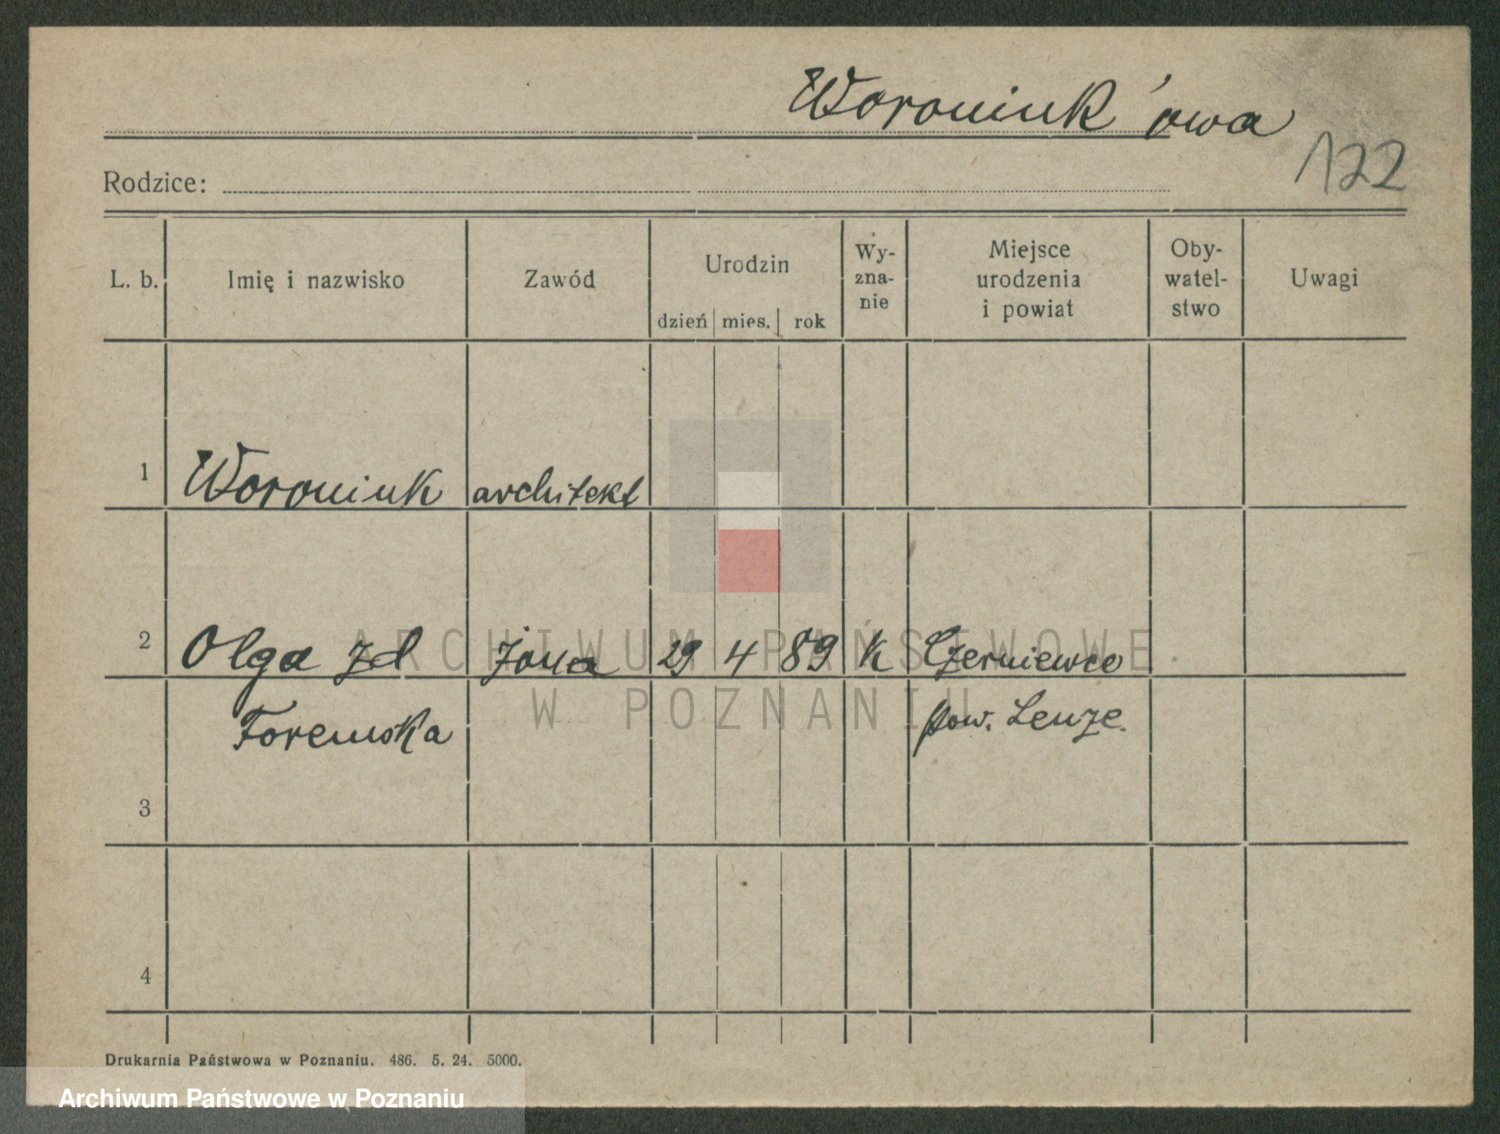 Woroniuk'owa
122
Rodzice:
L. b. Imię i nazwisko Zawód Urodzin dzień mies. rok Wy-zna-nie Miejsce urodzenia i powiat Oby-watel-stwo Uwagi
1 Woroniuk architekt
2 Olga zd żona 29 4 89 K Czerniewce
Toremska pow. Lenze.
3
4
Drukarnia Państwowa w Poznaniu. 486. 5. 24. 5000.
ARCHIWUM PAŃSTWOWE
W POZNANIU
Archiwum Państwowe w Poznaniu